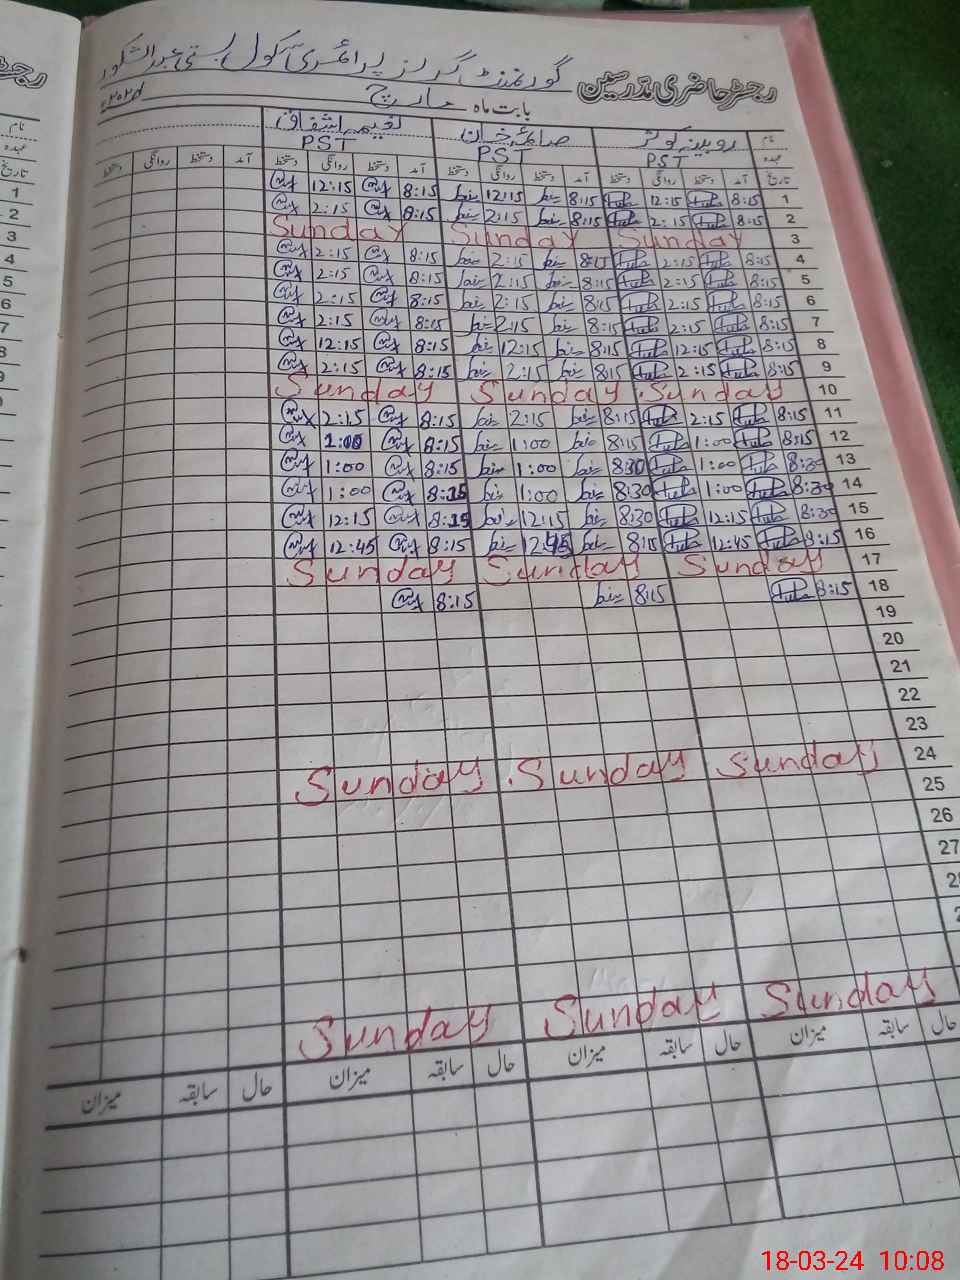 گورنمنٹ گرلز پرائمری سکول بستی عبدالشکور
رجسٹر حاضری مدرسین
بابت ماہ مارچ ۲۰۲۴ء
نام روبینہ کوثر صائمہ خان
عہدہ PST PST PST
تاریخ آمد دستخط روانگی دستخط آمد دستخط روانگی دستخط آمد دستخط روانگی دستخط آمد دستخط روانگی دستخط
1 8:15 12:15 8:15 12:15 8:15 12:15
2 8:15 2:15 8:15 2:15 8:15 2:15
3 Sunday Sunday Sunday
4 8:15 2:15 8:15 2:15 8:15 2:15
5 8:15 2:15 8:15 2:15 8:15 2:15
6 8:15 2:15 8:15 2:15 8:15 2:15
7 8:15 2:15 8:15 2:15 8:15 2:15
8 8:15 12:15 8:15 12:15 8:15 12:15
9 8:15 2:15 8:15 2:15 8:15 2:15
10 Sunday Sunday Sunday
11 8:15 2:15 8:15 2:15 8:15 2:15
12 8:15 1:00 8:15 1:00 8:15 1:00
13 8:30 1:00 8:30 1:00 8:15 1:00
14 8:30 1:00 8:30 1:00 8:15 1:00
15 8:30 12:15 8:30 12:15 8:15 12:15
16 8:15 12:45 8:15 12:45 8:15 12:45
17 Sunday Sunday Sunday
18 8:15 8:15 8:15
19
20
21
22
23
24 Sunday Sunday Sunday
25
26
27
Sunday Sunday Sunday
حال سابقہ میزان حال سابقہ میزان حال سابقہ میزان حال سابقہ میزان
18-03-24 10:08